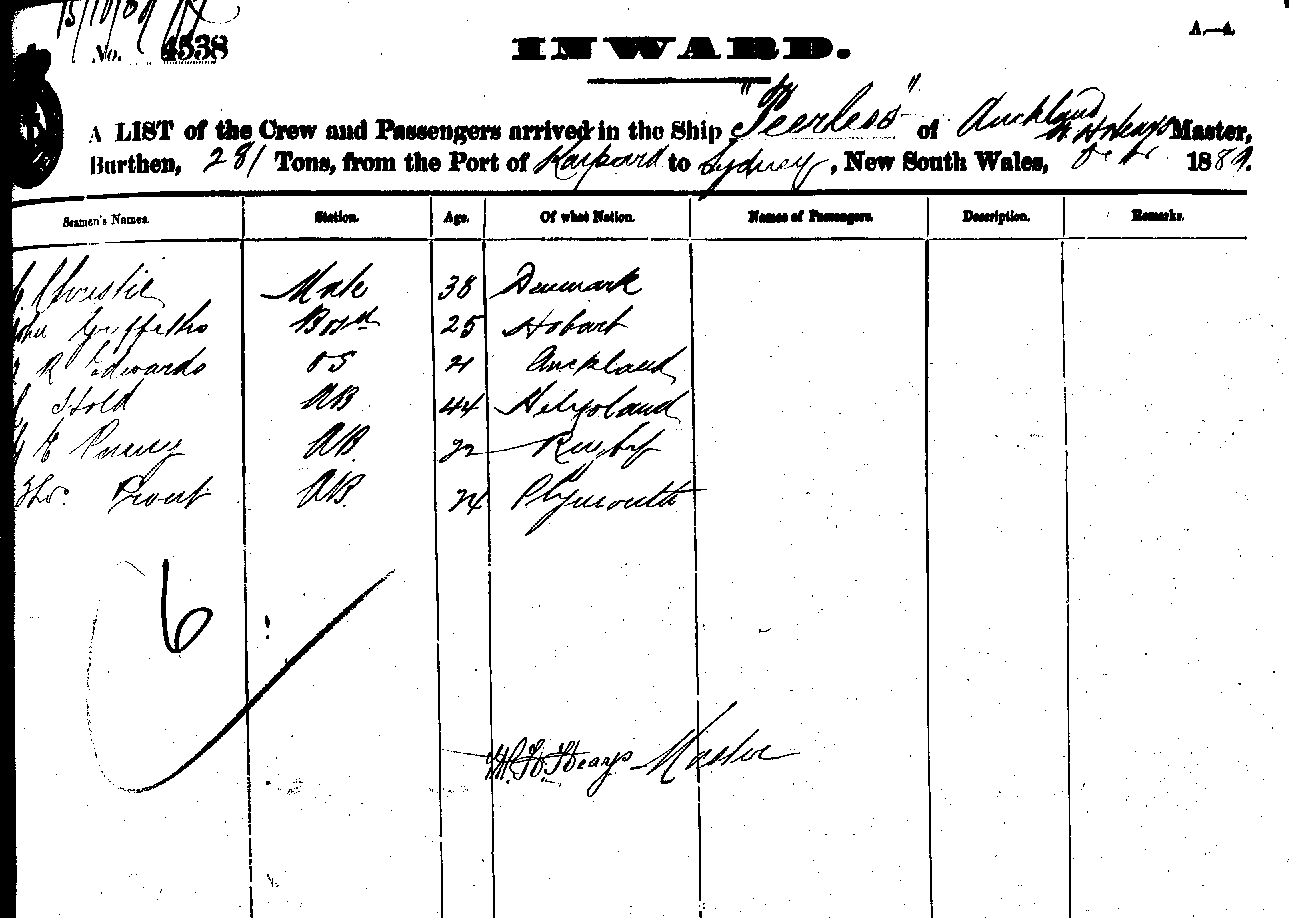 15/10/89
A.—4.
No. 4538
INWARD.
A LIST of the Crew and Passengers arrived in the Ship "Peerless" of Auckland Master,
Burthen, 281 Tons, from the Port of to Sydney, New South Wales, Oct. 1889.
Seamen's Names. Station. Age. Of what Nation. Names of Passengers. Description. Remarks.
Christie Mate 38 Denmark
John Griffiths Bosn 25 Hobart
R Edwards OS 21 Auckland
Hold AB 44 Heligoland
E AB 32 Rugby
Prout AB 24 Plymouth
6
W. H. Heays Master